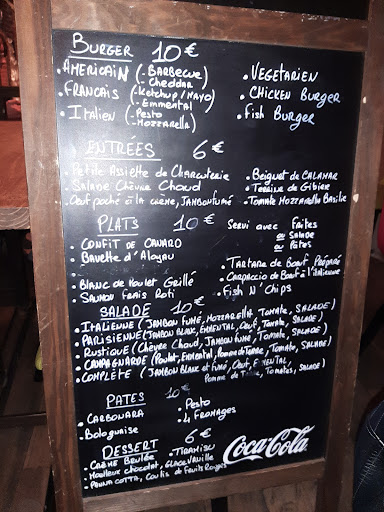 BURGER 10 €
• AMERICAIN (-BARBECUE
-Cheddar
• FRANCAIS (-Ketchup/MAYO)
-Emmental
• ITALIEN (-Pesto
-MOZZARELLA)
• VEGETARIEN
• CHICKEN BURGER
• Fish BURGER
ENTREES 6 €
• Petite Assiette de Charcuterie
• SALADE Chèvre Chaud
• Oeuf poché à la creme, JAMBON fumé
• Beignet de CALAMAR
• Terrine de Gibier
• TOMATE MOZZARELLA BASILIC
PLATS 10 € SERVI AVEC FRITES
ou SALADE
ou PÂTES
• CONFIT DE CANARD
• BAVETTE d'ALOYAU
• BLANC de Poulet Grillé
• SAUMON FRAIS Rôti
• TARTARE de Boeuf PRÉPARÉ
• CARPACCIO de Boeuf à l'Italienne
• Fish N' Chips
SALADE 10 €
• ITALIENNE (JAMBON FUMÉ, MOZZARELLA, TOMATE, SALADE)
• PARISIENNE (JAMBON BLANC, EMMENTAL, Oeuf, Tomate, SALADE)
• RUSTIQUE (Chèvre Chaud, JAMBON fumé, TOMATE, SALADE)
• CAMPAGNARDE (Poulet, Emmental, Pomme de Terre, Tomate, SALADE)
• COMPLÈTE (JAMBON BLANC et fumé, Oeuf, EMMENTAL,
Pomme de Terre, Tomates, SALADE)
PATES 10 €
• CARBONARA
• Bolognaise
• Pesto
• 4 FROMAGES
DESSERT 6 €
• CRÈME BRULÉE • TIRAMISU
• Moelleux chocolat, GLACE VANILLE
• PANNA COTTA, Coulis de Fruits Rouges
Coca-Cola